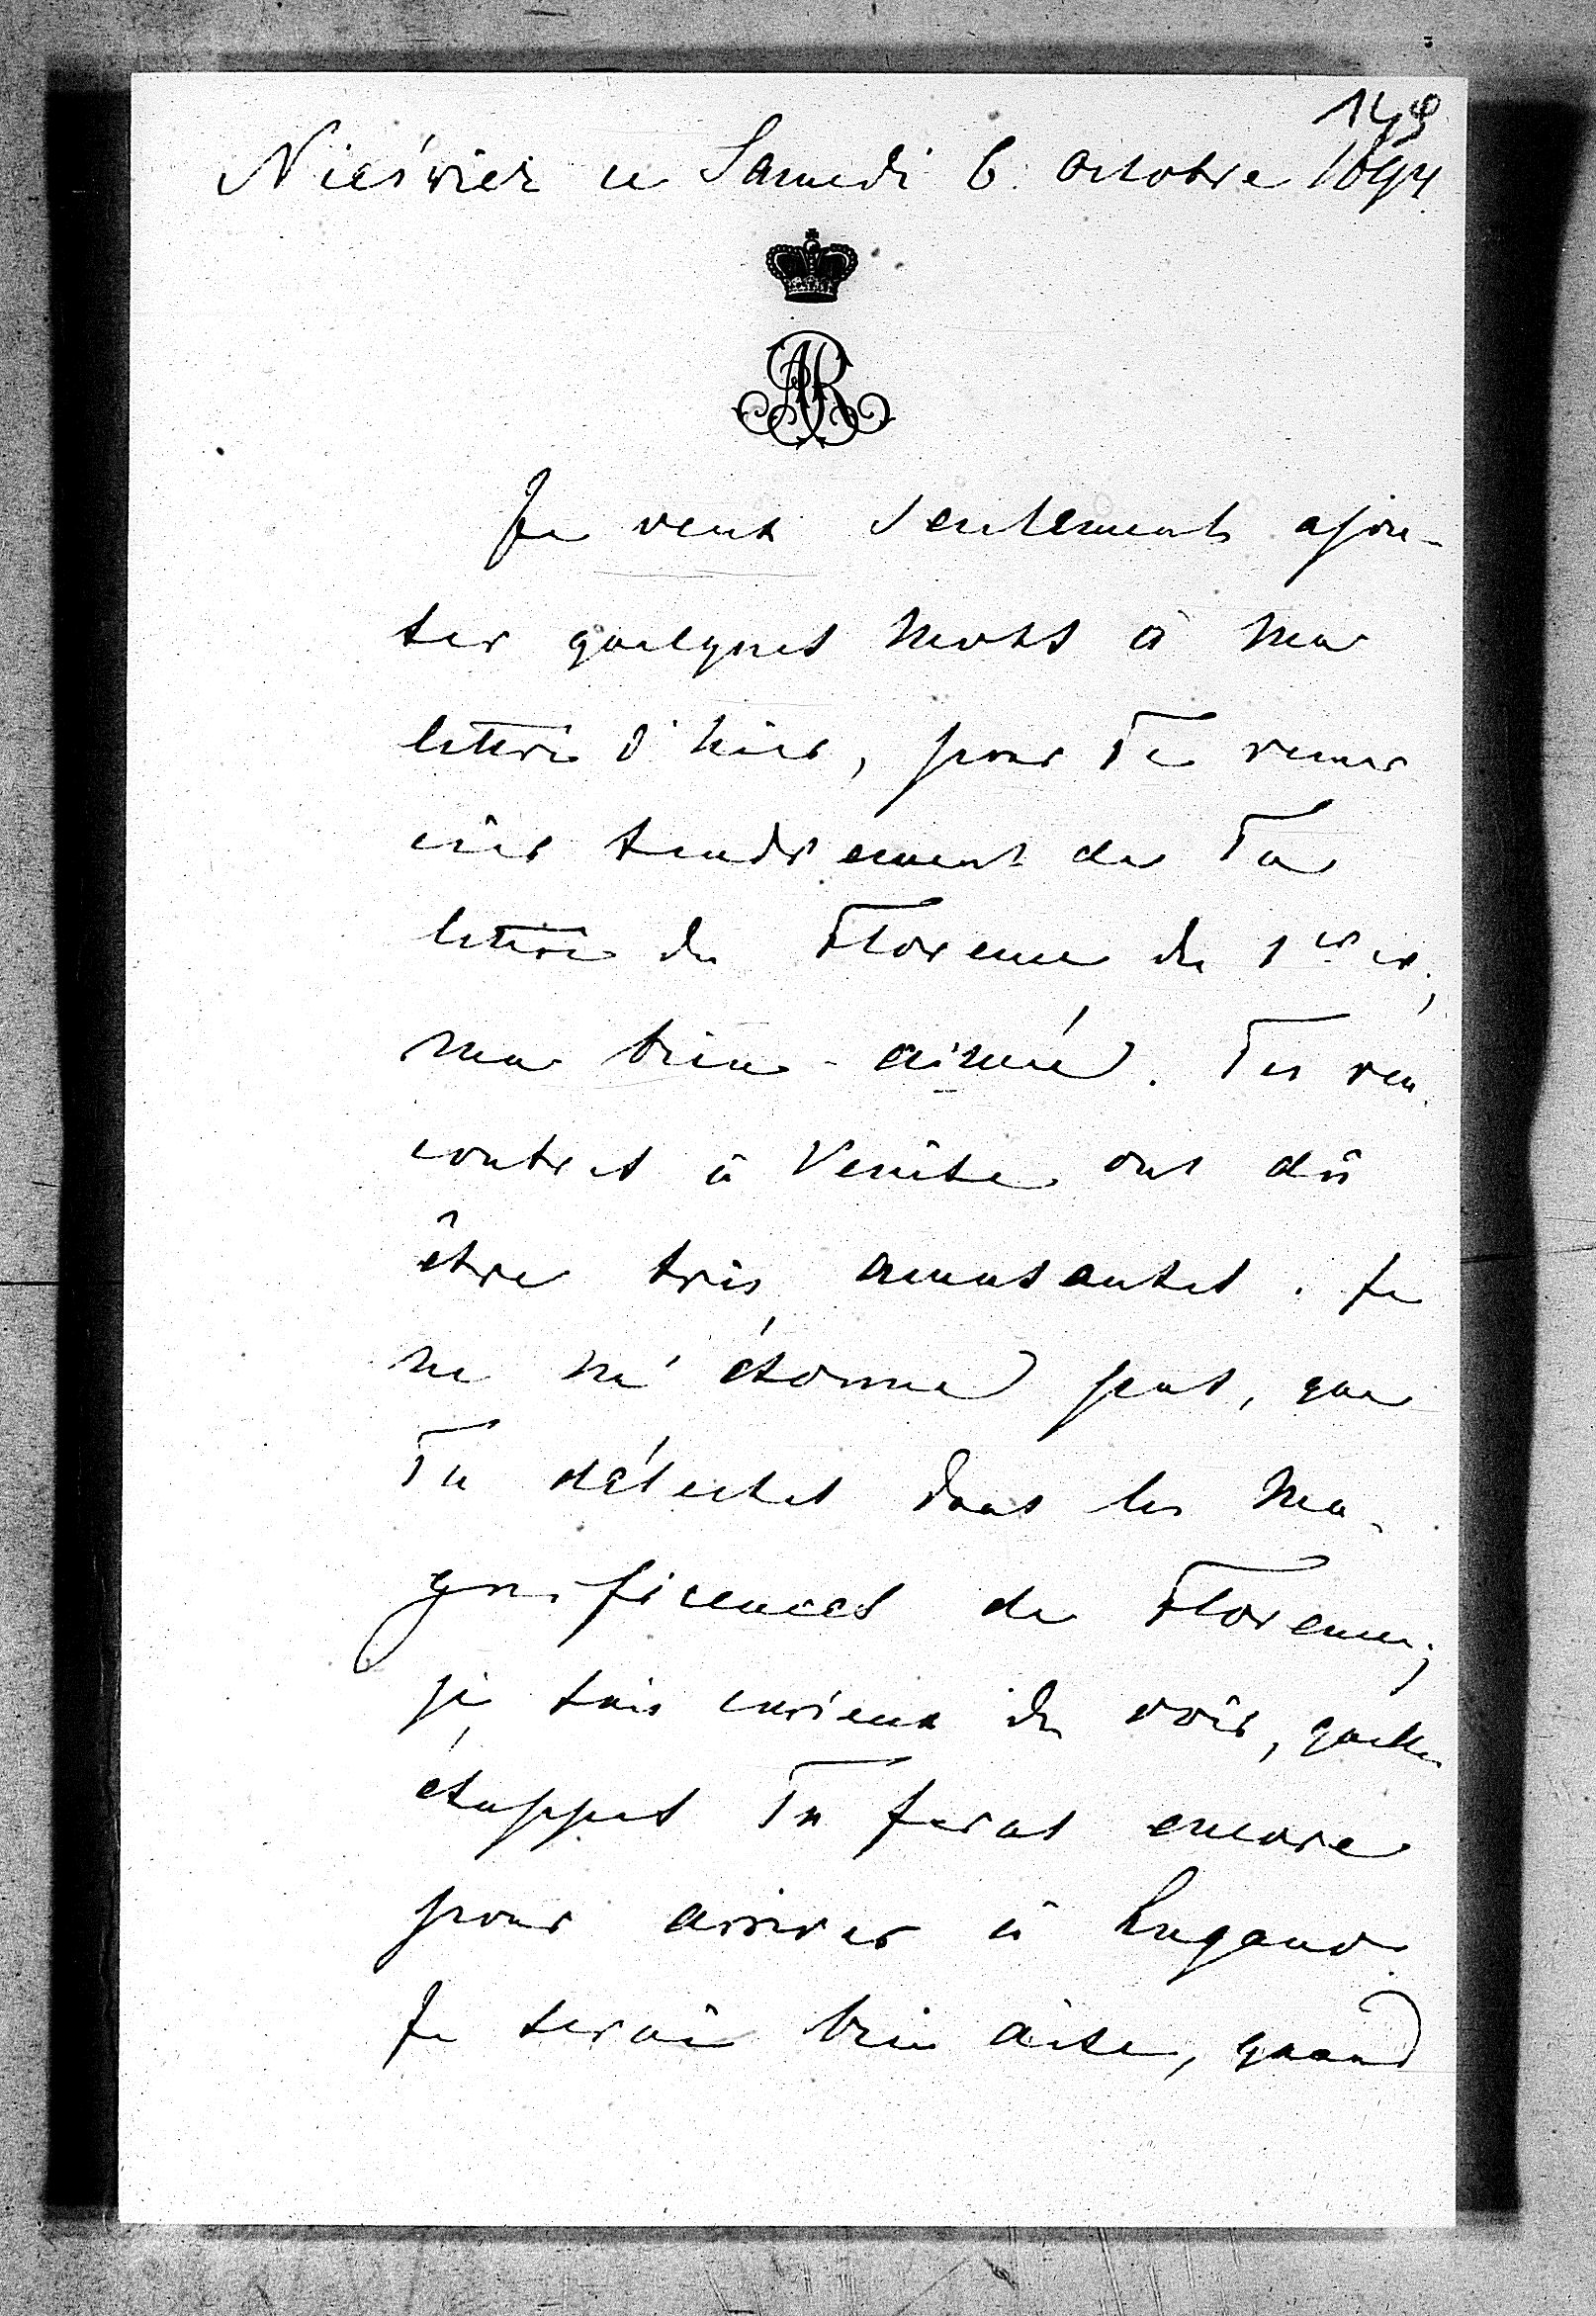 149
Nieśwież ce Samedi 6 Octobre 1894
AR
Je veux seulement ajou-
ter quelques mots à ma
lettre d'hier, pour Te remer
cier tendrement de Ta
lettre de Florence du 1er cr,
ma bien-aimée. Tes ren
contres à Venise ont dû
être très amusantes. Je
ne m'étonne pas, que
Tu délectes dans les ma-
gnificences de Florence;
je suis curieux de voir, quelles
étappes Tu feras encore
pour arriver à Lugano
Je serai bien aise, quand